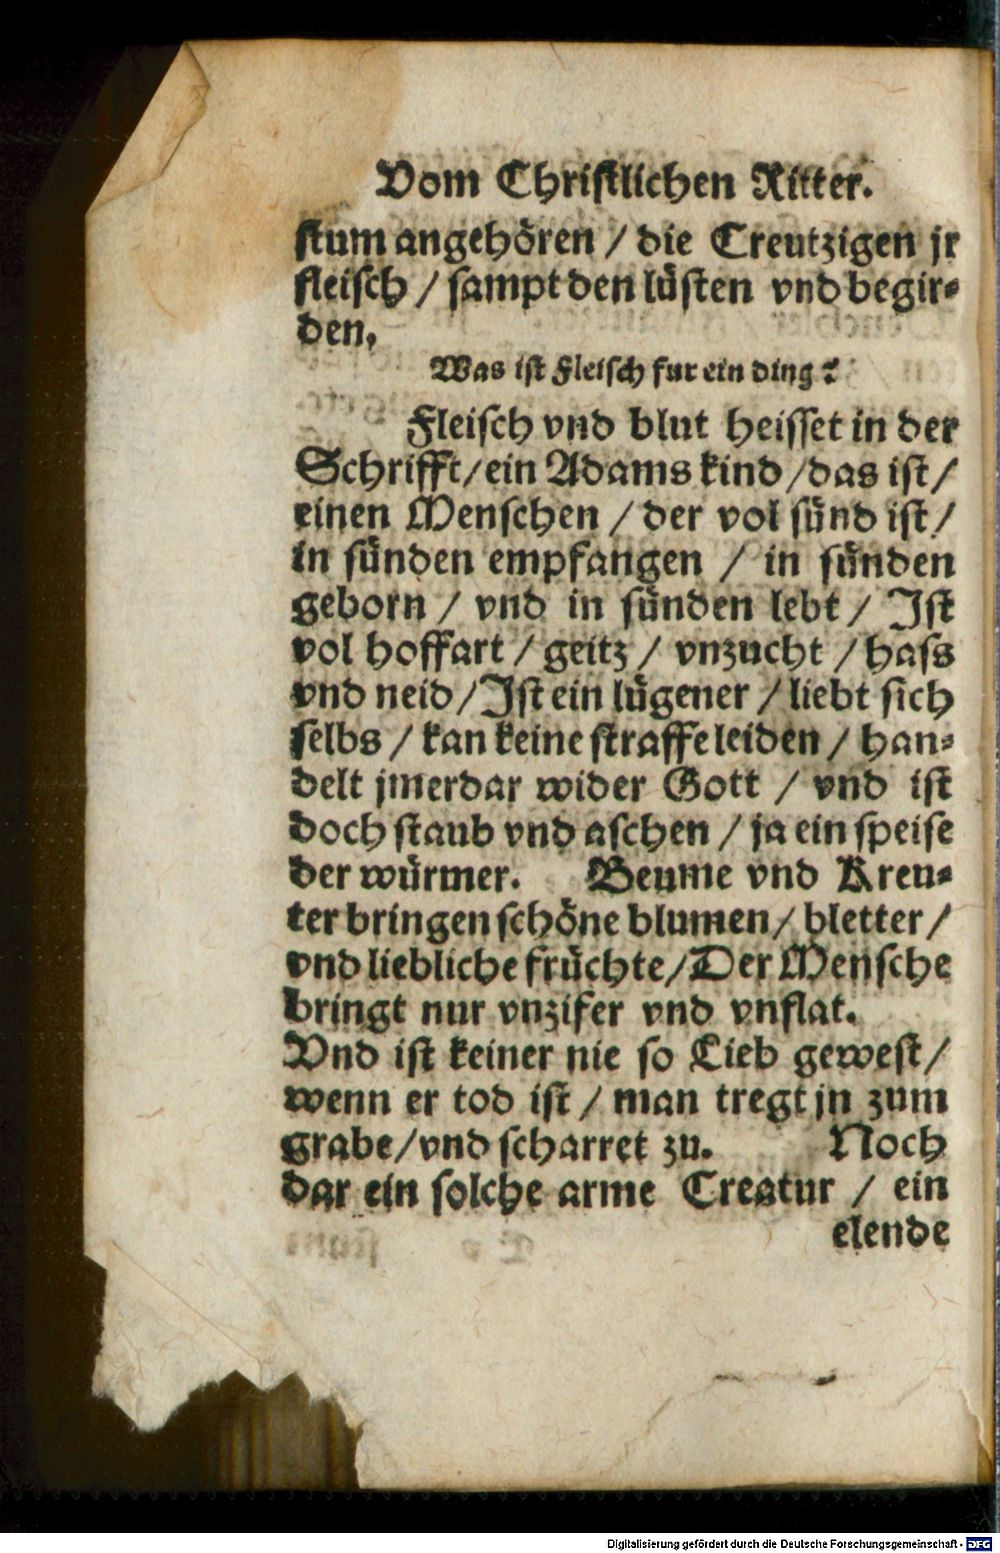 Vom Christlichen Ritter.
stum angehören / die Creutzigen jr
fleisch / sampt den lüsten vnd begir⸗
den.
Was ist Fleisch fur ein ding?
Fleisch vnd blut heisset in der
Schrifft/ein Adams kind /das ist/
einen Menschen / der vol sünd ist/
in sünden empfangen / in sünden
geborn / vnd in sünden lebt / Ist
vol hoffart / geitz / vnzucht / hass
vnd neid/Ist ein lügener / liebt sich
selbs / kan keine straffe leiden / han⸗
delt jmerdar wider Gott / vnd ist
doch staub vnd aschen / ja ein speise
der würmer. Beume vnd Kreu⸗
ter bringen schöne blumen/ bletter /
vnd liebliche früchte/Der Mensche
bringt nur vnzifer vnd vnflat.
Vnd ist keiner nie so Lieb gewest/
wenn er tod ist / man tregt jn zum
grabe/vnd scharret zu. Noch
dar ein solche arme Creatur / ein
elende
Digitalisierung gefördert durch die Deutsche Forschungsgemeinschaft - DFG